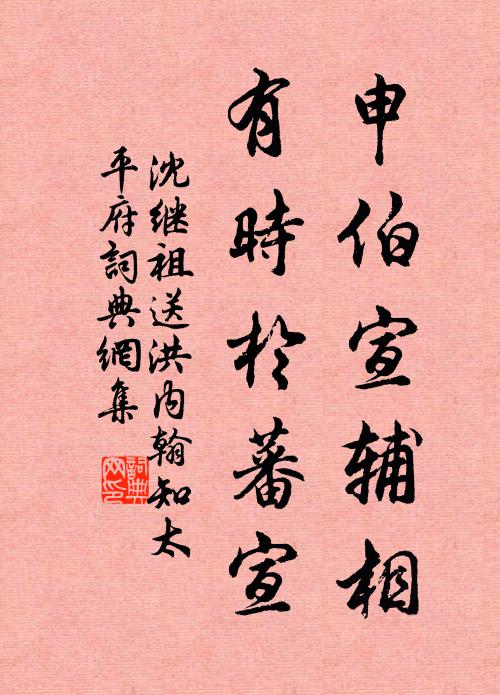 申伯宣辅相
有時於蕃宣
沈继祖送洪内翰知太
平府詞典網集
詞典
网印